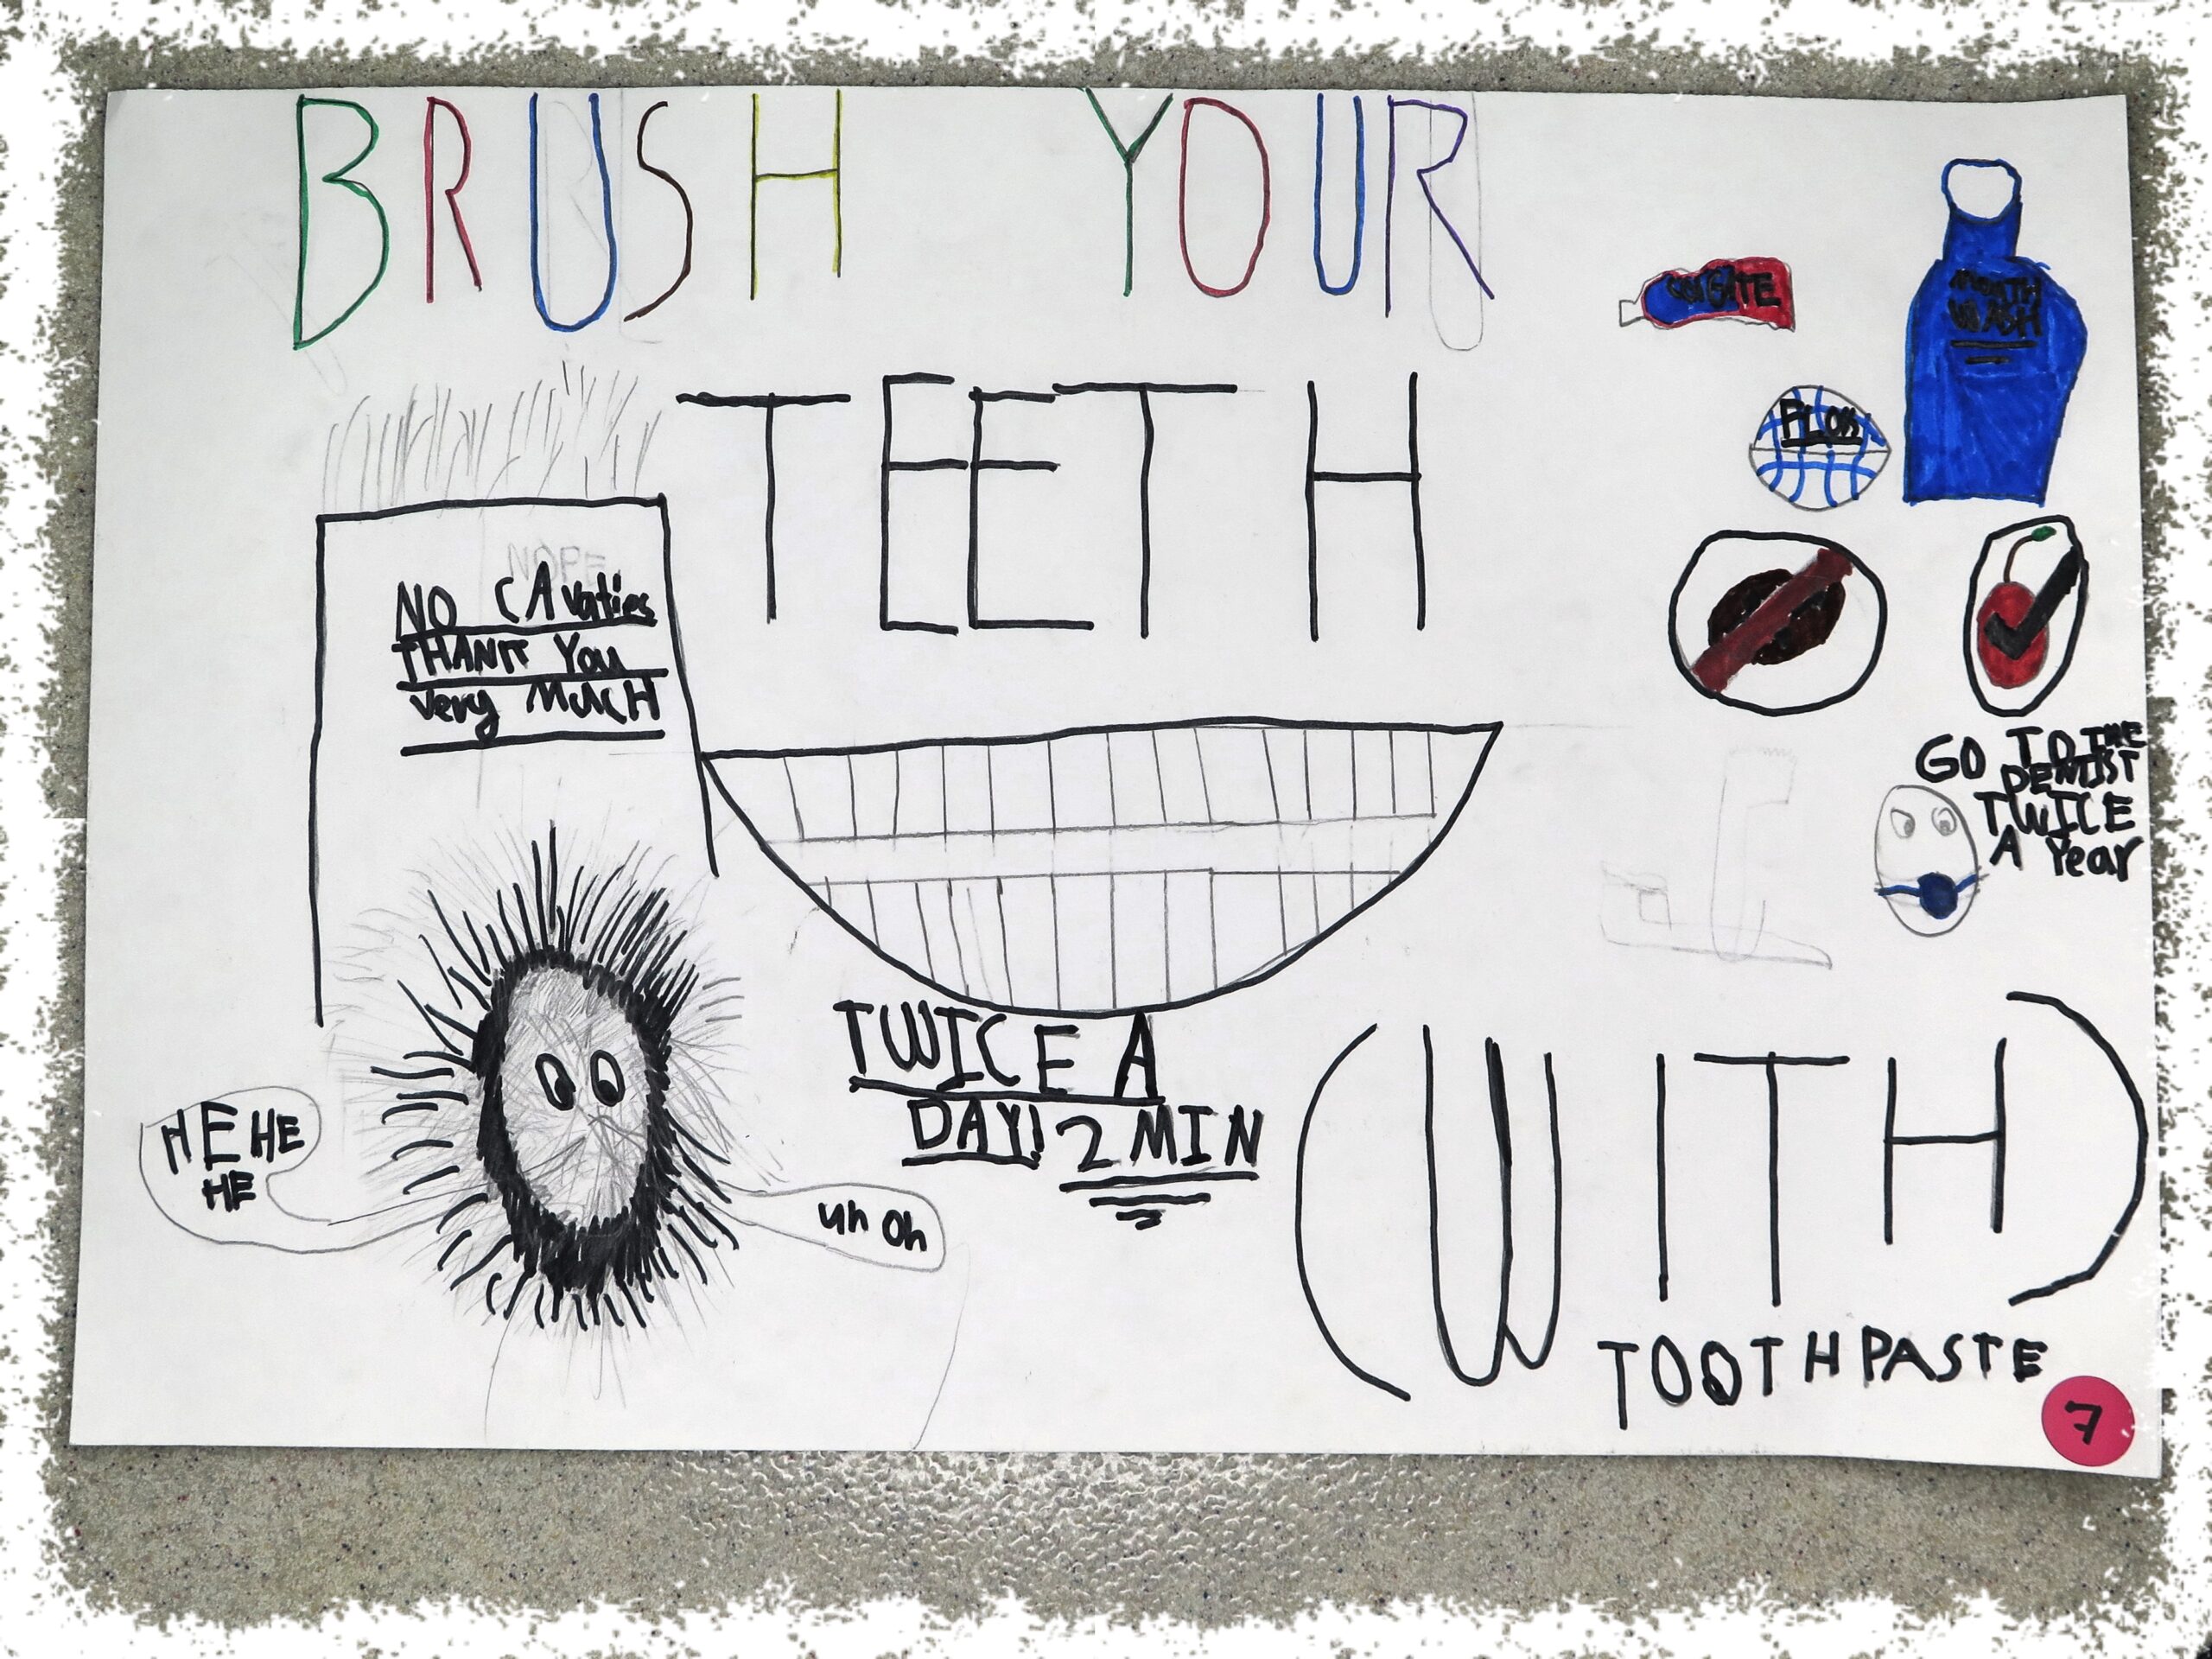 BRUSH YOUR
TEETH
MOUTH
WASH
FLOSS
NO CAvaties
THANK You
very MUCH
GO TO THE
DENTIST
TWICE
A Year
TWICE A
DAY! 2 MIN
HEHE
HE
uh oh
(WITH)
TOOTHPASTE
7